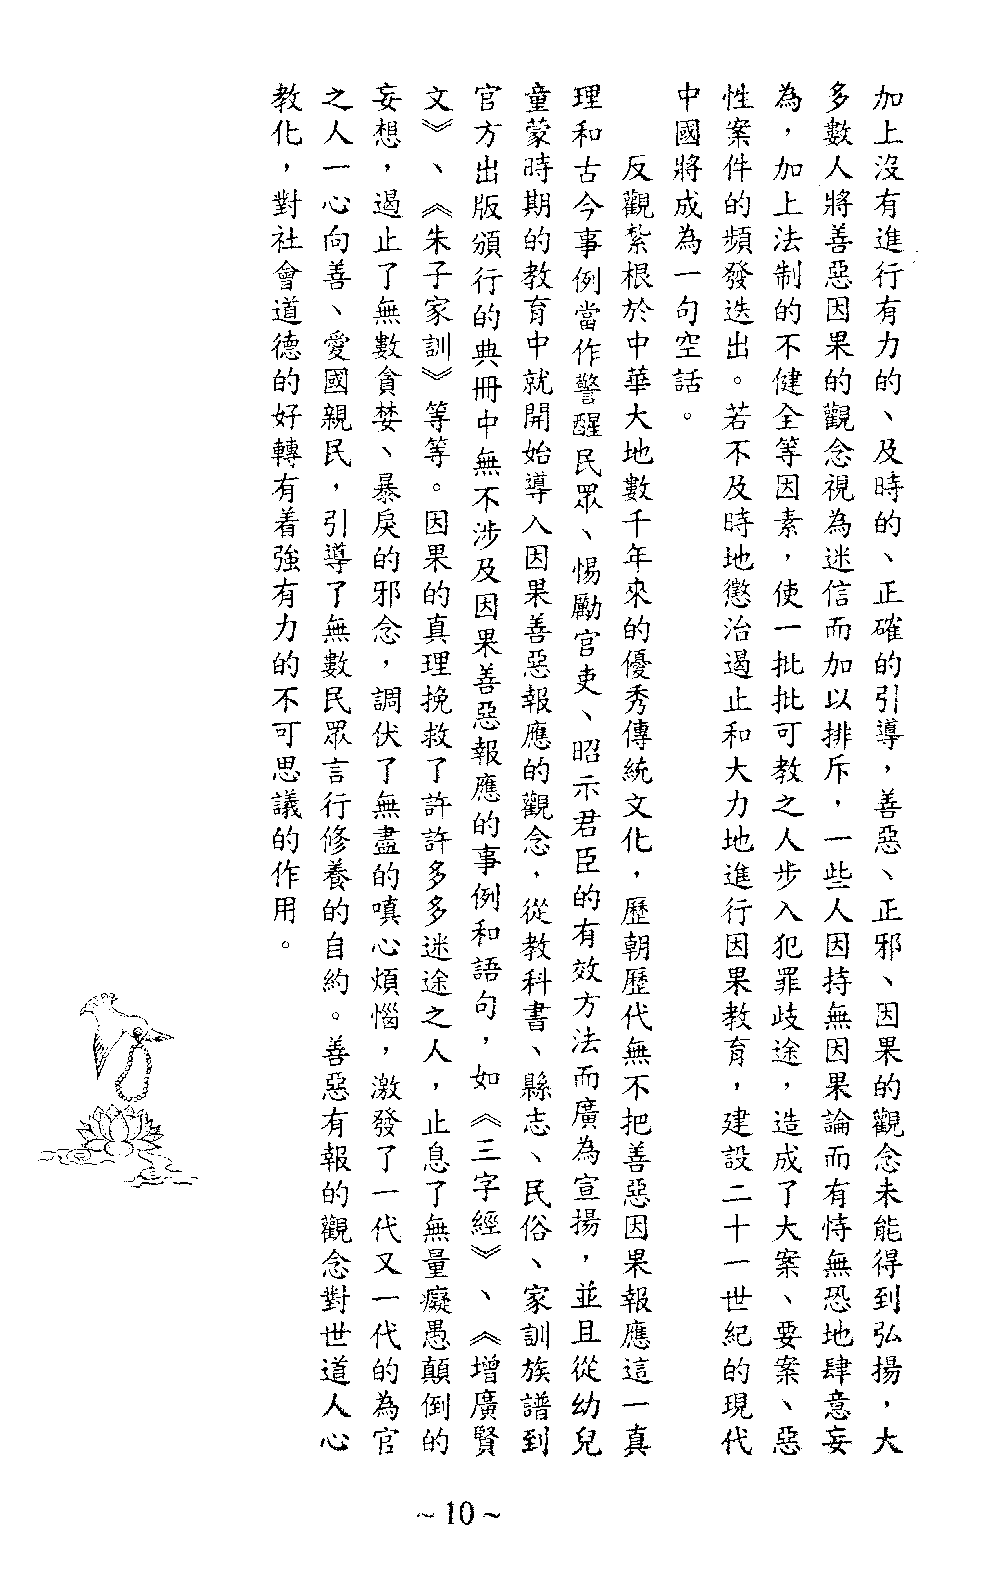 加上沒有進行有力的、及時的、正確的引導，善惡、正邪、因果的觀念未能得到弘揚，大
多數人將善惡因果的觀念視為迷信而加以排斥，一些人因持無因果論而有恃無恐地肆意妄
為，加上法制的不健全等因素，使一批批可教之人步入犯罪歧途，造成了大案、要案、惡
性案件的頻發迭出。若不及時地懲治遏止和大力地進行因果教育，建設二十一世紀的現代
中國將成為一句空話。
反觀紮根於中華大地數千年來的優秀傳統文化，歷朝歷代無不把善惡因果報應這一真
理和古今事例當作警醒民眾、惕勵官吏、昭示君臣的有效方法而廣為宣揚，並且從幼兒
童蒙時期的教育中就開始導入因果善惡報應的觀念，從教科書、縣志、民俗、家訓族譜到
官方出版頒行的典冊中無不涉及因果善惡報應的事例和語句，如《三字經》、《增廣賢
文》、《朱子家訓》等等。因果的真理挽救了許許多多迷途之人，止息了無量癡愚顛倒的
妄想，遏止了無數貪婪、暴戾的邪念，調伏了無盡的嗔心煩惱，激發了一代又一代的為官
之人一心向善、愛國親民，引導了無數民眾言行修養的自約。善惡有報的觀念對世道人心
教化，對社會道德的好轉有着強有力的不可思議的作用。
~10~